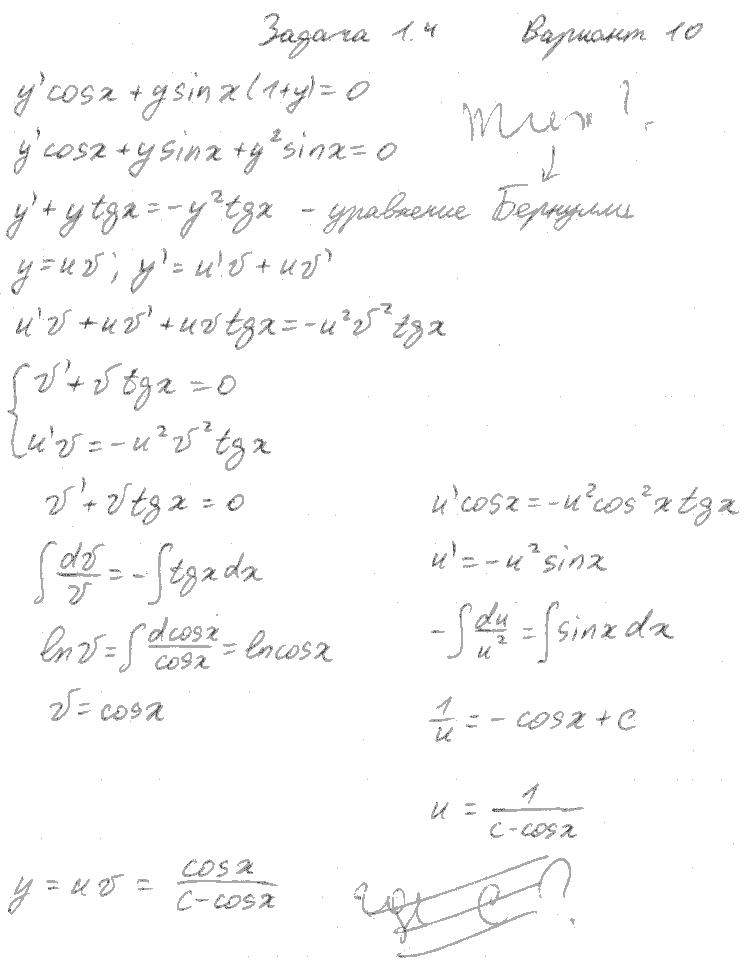 Задача 1.4 Вариант 10
y'cosx + ysinx(1+y) = 0
тип?
y'cosx + ysinx + y²sinx = 0
y' + ytgx = -y²tgx - уравнение Бернулли
y = uv; y' = u'v + uv'
u'v + uv' + uvtgx = -u²v²tgx
v' + vtgx = 0
u'v = -u²v²tgx
v' + vtgx = 0
∫dv/v = -∫tgxdx
lnv = ∫dcosx/cosx = lncosx
v = cosx
u'cosx = -u²cos²xtgx
u' = -u²sinx
-∫du/u² = ∫sinxdx
1/u = -cosx + c
u = 1/(c-cosx)
y = uv = cosx/(c-cosx)
где C?